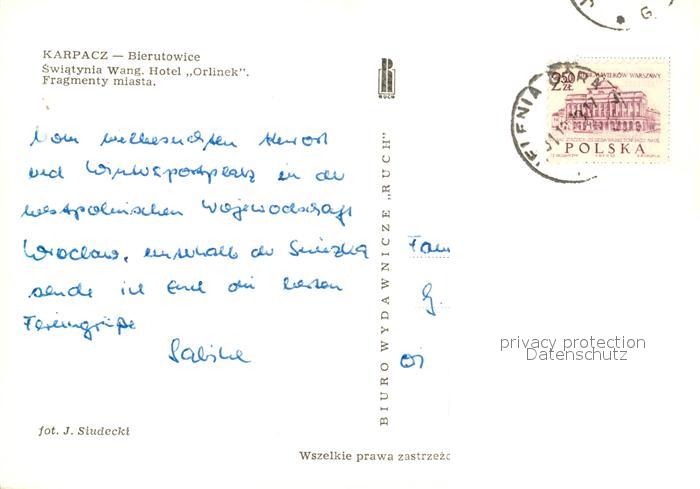 KARPACZ — Bierutowice
Świątynia Wang. Hotel „Orlinek".
Fragmenty miasta.
RUCH
Vom vielbesuchten Kurort
und Wintersportplatz in der
westpolnischen Wojewodschaft
Wrocław, unterhalb der Śnieżka
sende ich Euch die besten
Feriengrüße
Sabine
fot. J. Siudecki
BIURO WYDAWNICZE „RUCH"
Wszelkie prawa zastrzeżo
2,50 ZŁ
WIEKÓW WARSZAWY
POLSKA
G.
Fam
G.
privacy protection
Datenschutz